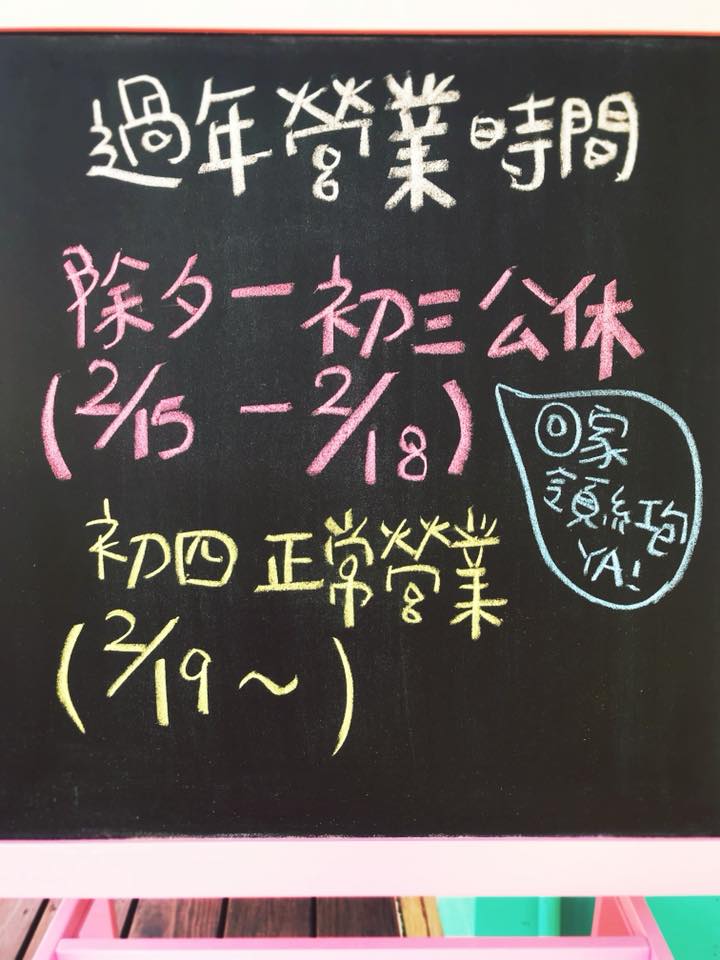 過年營業時間
除夕－初三公休
(2/15 － 2/18)
回家
領紅包
YA!
初四 正常營業
(2/19～)